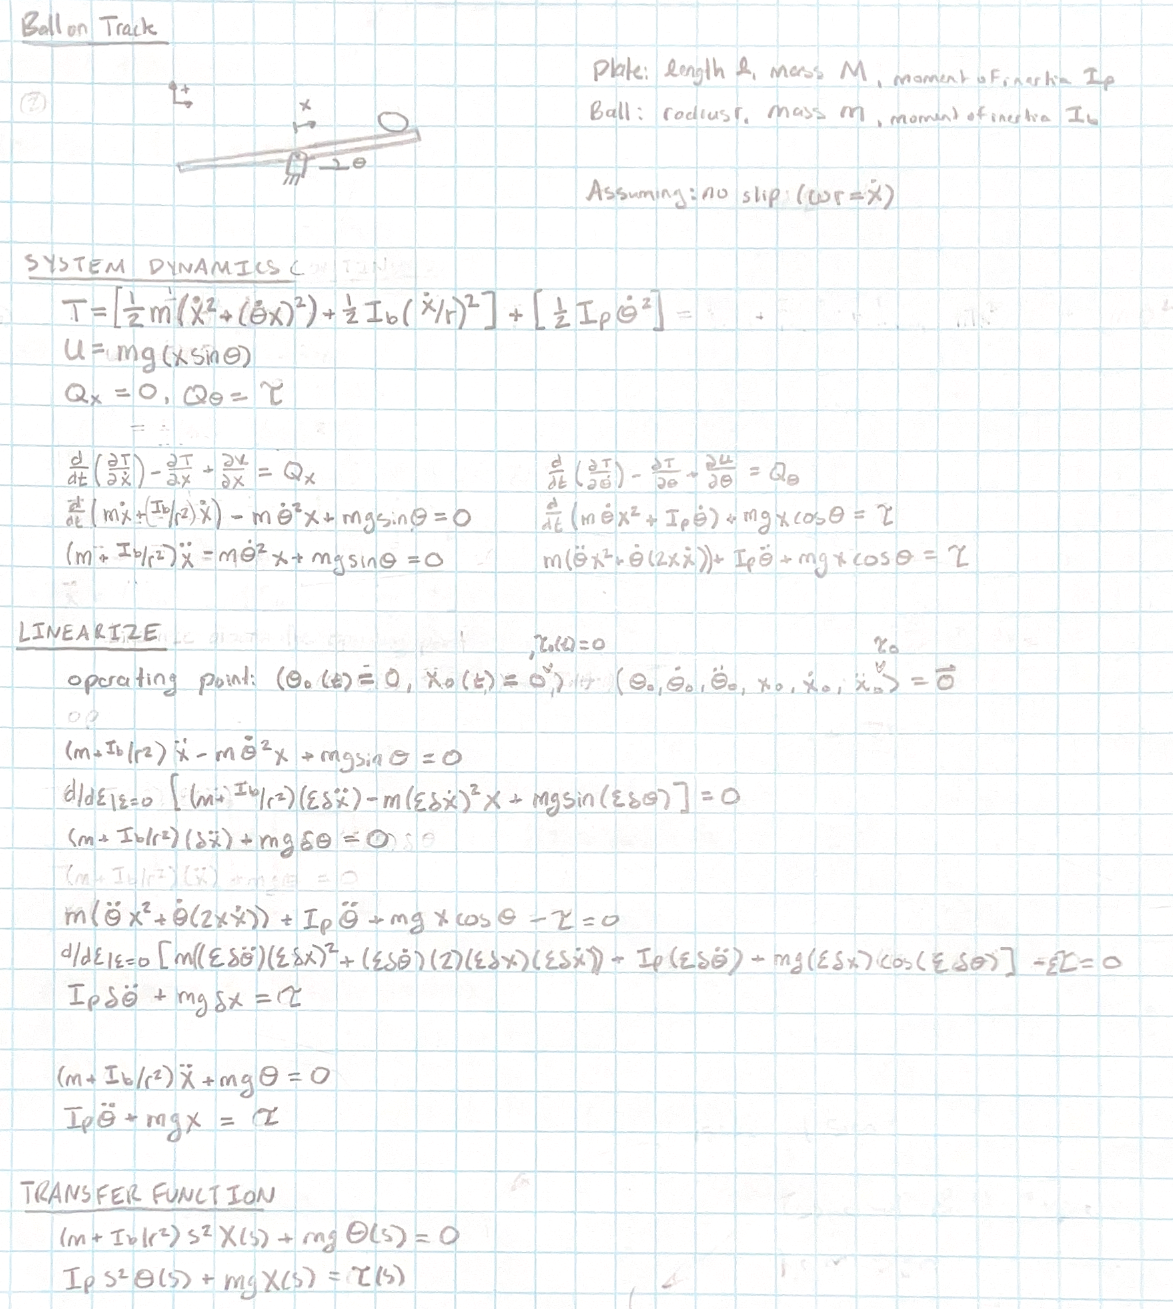 Ball on Track
Plate: length l, mass M, moment of inertia I_p
Ball: radius r, mass m, moment of inertia I_b
+
x
θ
Assuming: no slip (ωr = ẋ)
SYSTEM DYNAMICS
T = [½ m(ẋ² + (θ̇x)²) + ½ I_b (ẋ/r)²] + [½ I_p θ̇²]
U = mg(x sinθ)
Q_x = 0, Q_θ = τ
d/dt (∂T/∂ẋ) - ∂T/∂x + ∂U/∂x = Q_x
d/dt (mẋ + (I_b/r²)ẋ) - mθ̇²x + mg sinθ = 0
(m + I_b/r²)ẍ - mθ̇²x + mg sinθ = 0
d/dt (∂T/∂θ̇) - ∂T/∂θ + ∂U/∂θ = Q_θ
d/dt (mθ̇x² + I_pθ̇) + mgx cosθ = τ
m(θ̈x² + θ̇(2xẋ)) + I_pθ̈ + mgx cosθ = τ
LINEARIZE
operating point: (θ₀(t) = 0, x₀(t) = 0, τ₀(t) = 0) (θ₀, θ̇₀, θ̈₀, x₀, ẋ₀, ẍ₀, τ₀) = 0⃗
(m + I_b/r²)ẍ - mθ̇²x + mg sinθ = 0
d/dε|ε=0 [(m + I_b/r²)(εδẍ) - m(εδẋ)²x + mg sin(εδθ)] = 0
(m + I_b/r²)(δẍ) + mgδθ = 0
m(θ̈x² + θ̇(2xẋ)) + I_pθ̈ + mgx cosθ - τ = 0
d/dε|ε=0 [m((εδθ̈)(εδx)² + (εδθ̇)(2)(εδx)(εδẋ)) + I_p(εδθ̈) + mg(εδx) cos(εδθ)] - ετ = 0
I_pδθ̈ + mgδx = τ
(m + I_b/r²)ẍ + mgθ = 0
I_pθ̈ + mgx = τ
TRANSFER FUNCTION
(m + I_b/r²)s²X(s) + mgΘ(s) = 0
I_p s²Θ(s) + mgX(s) = τ(s)